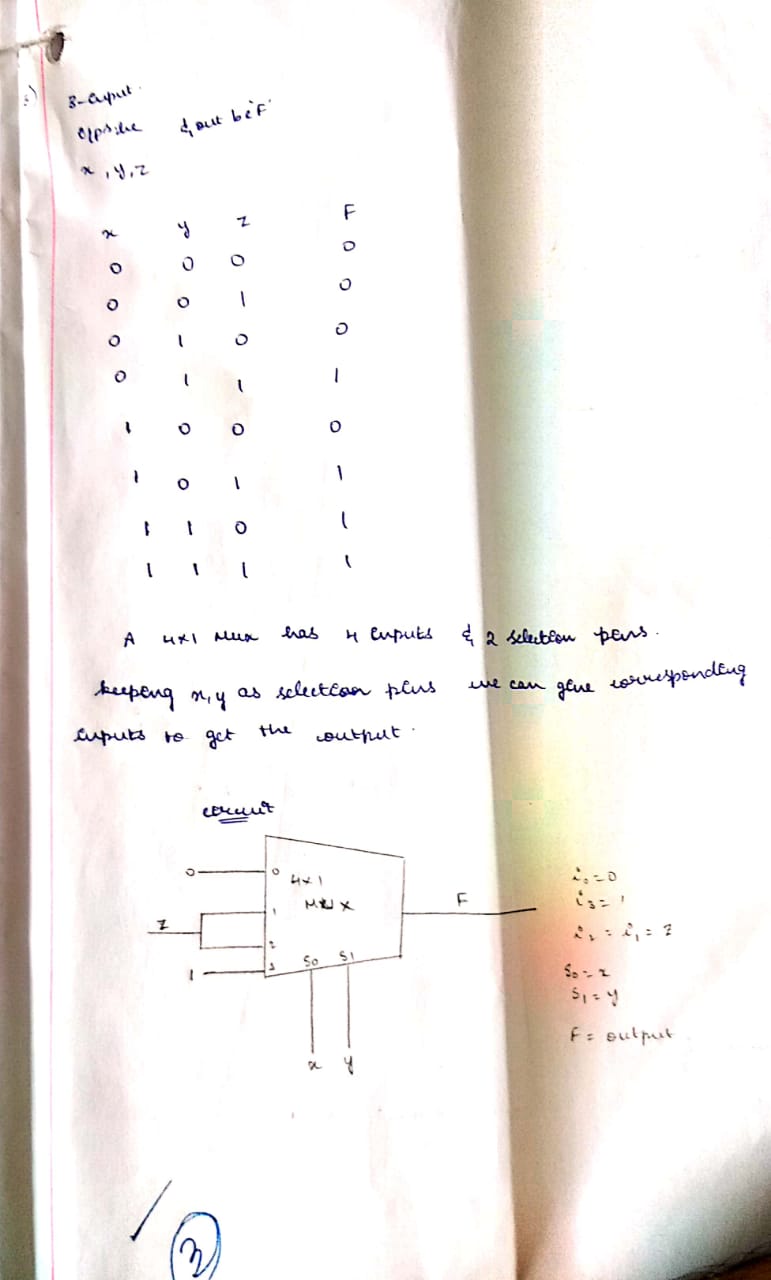 3-input
opp
& out be 'F'
x, y, z
x y z F
0 0 0 0
0 0 1 0
0 1 0 0
0 1 1 1
1 0 0 0
1 0 1 1
1 1 0 1
1 1 1 1
A 4x1 Mux has 4 inputs & 2 selection pins.
keeping x, y as selection pins we can give corresponding
inputs to get the output.
circuit
0 0 4x1
MUX
z 1 F
2
1 3 S0 S1
x y
i0 = 0
i3 = 1
i2 = i1 = z
S0 = x
S1 = y
F = output
3